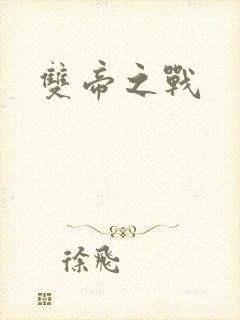 雙帝之戰
徐飛